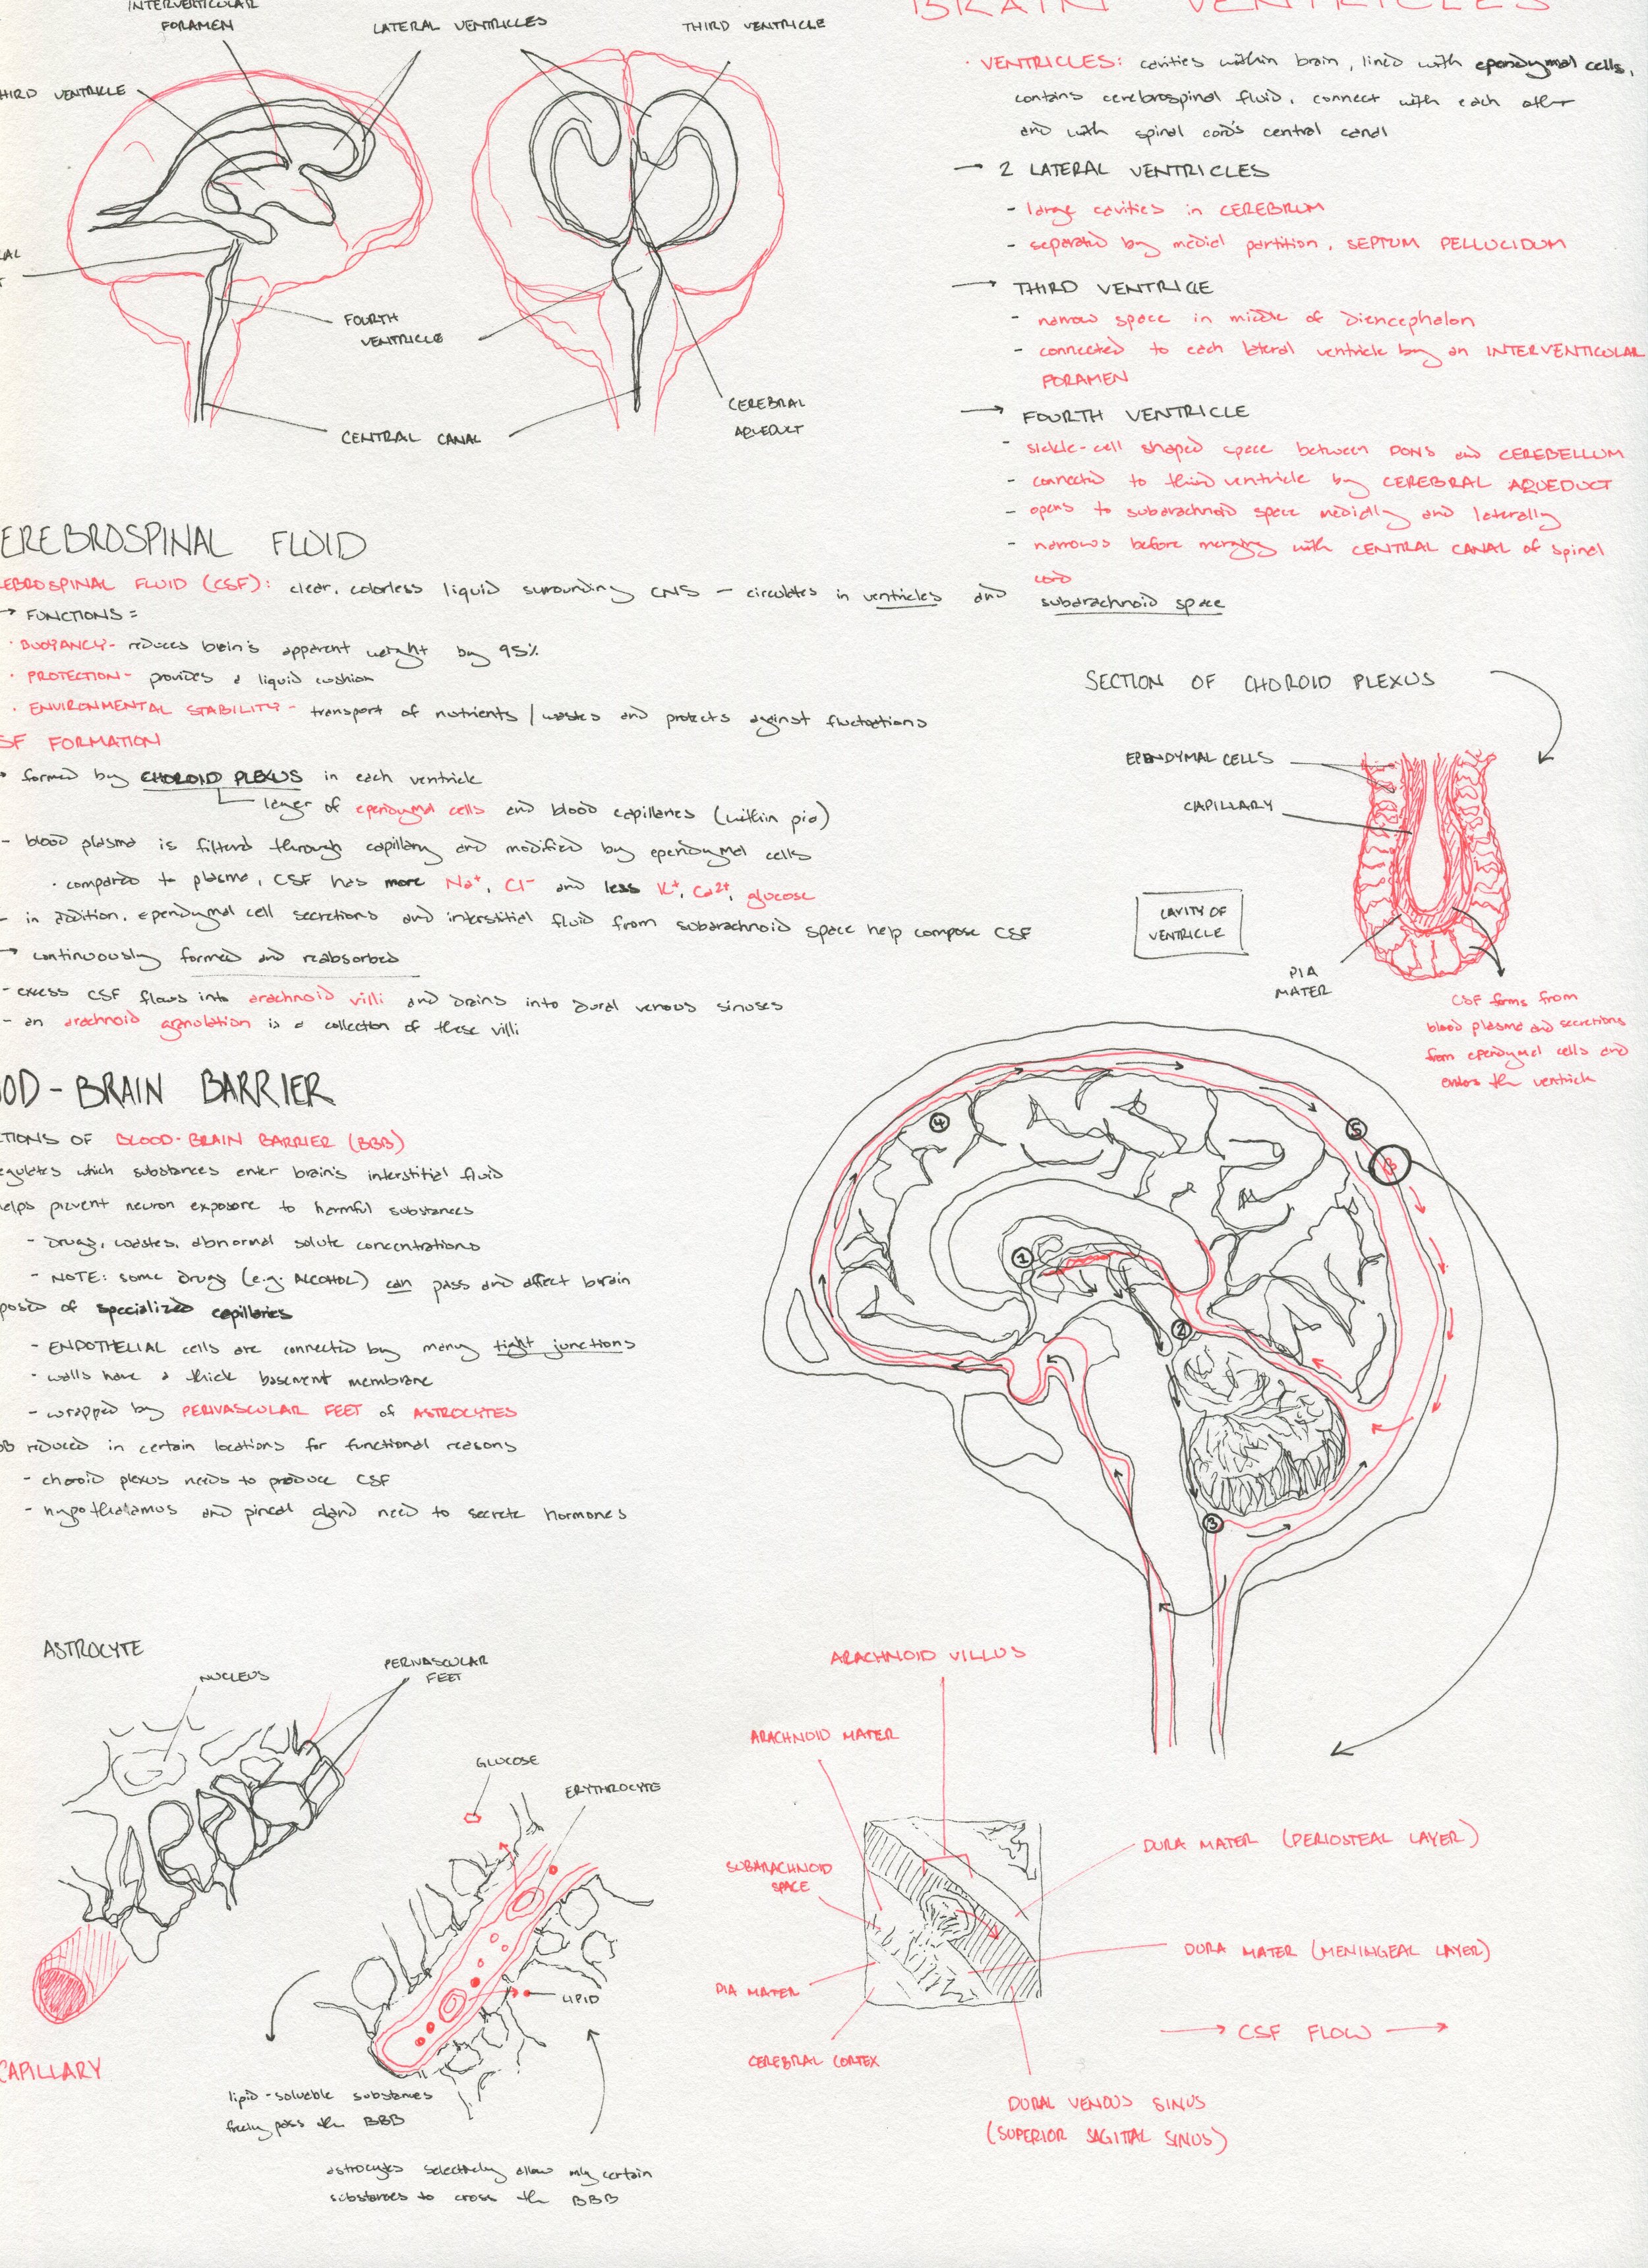 INTERVERTICULAR
FORAMEN
LATERAL VENTRICLES
THIRD VENTRICLE
HIRD VENTRICLE
RAL
T
FOURTH
VENTRICLE
CENTRAL CANAL
CEREBRAL
AQUEDUCT
BRAIN VENTRICLES
· VENTRICLES: cavities within brain, lined with ependymal cells,
contains cerebrospinal fluid, connect with each other
and with spinal cord's central canal
→ 2 LATERAL VENTRICLES
- large cavities in CEREBRUM
- separated by medial partition, SEPTUM PELLUCIDUM
→ THIRD VENTRICLE
- narrow space in middle of diencephalon
- connected to each lateral ventricle by an INTERVENTICULAR
FORAMEN
→ FOURTH VENTRICLE
- sickle-cell shaped space between PONS and CEREBELLUM
- connected to third ventricle by CEREBRAL AQUEDUCT
- opens to subarachnoid space medially and laterally
- narrows before merging with CENTRAL CANAL of spinal
cord
EREBROSPINAL FLUID
EBROSPINAL FLUID (CSF): clear, colorless liquid surrounding CNS - circulates in ventricles and subarachnoid space
→ FUNCTIONS =
· BUOYANCY - reduces brain's apparent weight by 95%
· PROTECTION - provides a liquid cushion
· ENVIRONMENTAL STABILITY - transport of nutrients / wastes and protects against fluctuations
SF FORMATION
formed by CHOROID PLEXUS in each ventricle
layer of ependymal cells and blood capillaries (within pia)
- blood plasma is filtered through capillary and modified by ependymal cells
· compared to plasma, CSF has more Na⁺, Cl⁻ and less K⁺, Ca²⁺, glucose
- in addition, ependymal cell secretions and interstitial fluid from subarachnoid space help compose CSF
→ continuously formed and reabsorbed
- excess CSF flows into arachnoid villi and drains into dural venous sinuses
- an arachnoid granulation is a collection of these villi
SECTION OF CHOROID PLEXUS
EPENDYMAL CELLS
CAPILLARY
CAVITY OF
VENTRICLE
PIA
MATER
CSF forms from
blood plasma and secretions
from ependymal cells and
enters the ventricle
OOD-BRAIN BARRIER
CTIONS OF BLOOD-BRAIN BARRIER (BBB)
egulates which substances enter brain's interstitial fluid
helps prevent neuron exposore to harmful substances
- drugs, wastes, abnormal solute concentrations
- NOTE: some drugs (e.g. ALCOHOL) can pass and affect brain
posed of specialized capillaries
- ENDOTHELIAL cells are connected by many tight junctions
- walls have a thick basement membrane
- wrapped by PERIVASCULAR FEET of ASTROCYTES
BB reduced in certain locations for functional reasons
- choroid plexus needs to produce CSF
- hypothalamus and pineal gland need to secrete hormones
1
2
3
4
5
B
ASTROCYTE
NUCLEUS
PERIVASCULAR
FEET
GLUCOSE
ERYTHROCYTE
LIPID
CAPILLARY
lipid-soluble substances
freely pass the BBB
astrocytes selectively allow only certain
substances to cross the BBB
ARACHNOID VILLUS
ARACHNOID MATER
SUBARACHNOID
SPACE
PIA MATER
CEREBRAL CORTEX
DURA MATER (PERIOSTEAL LAYER)
DURA MATER (MENINGEAL LAYER)
→ CSF FLOW →
DURAL VENOUS SINUS
(SUPERIOR SAGITTAL SINUS)